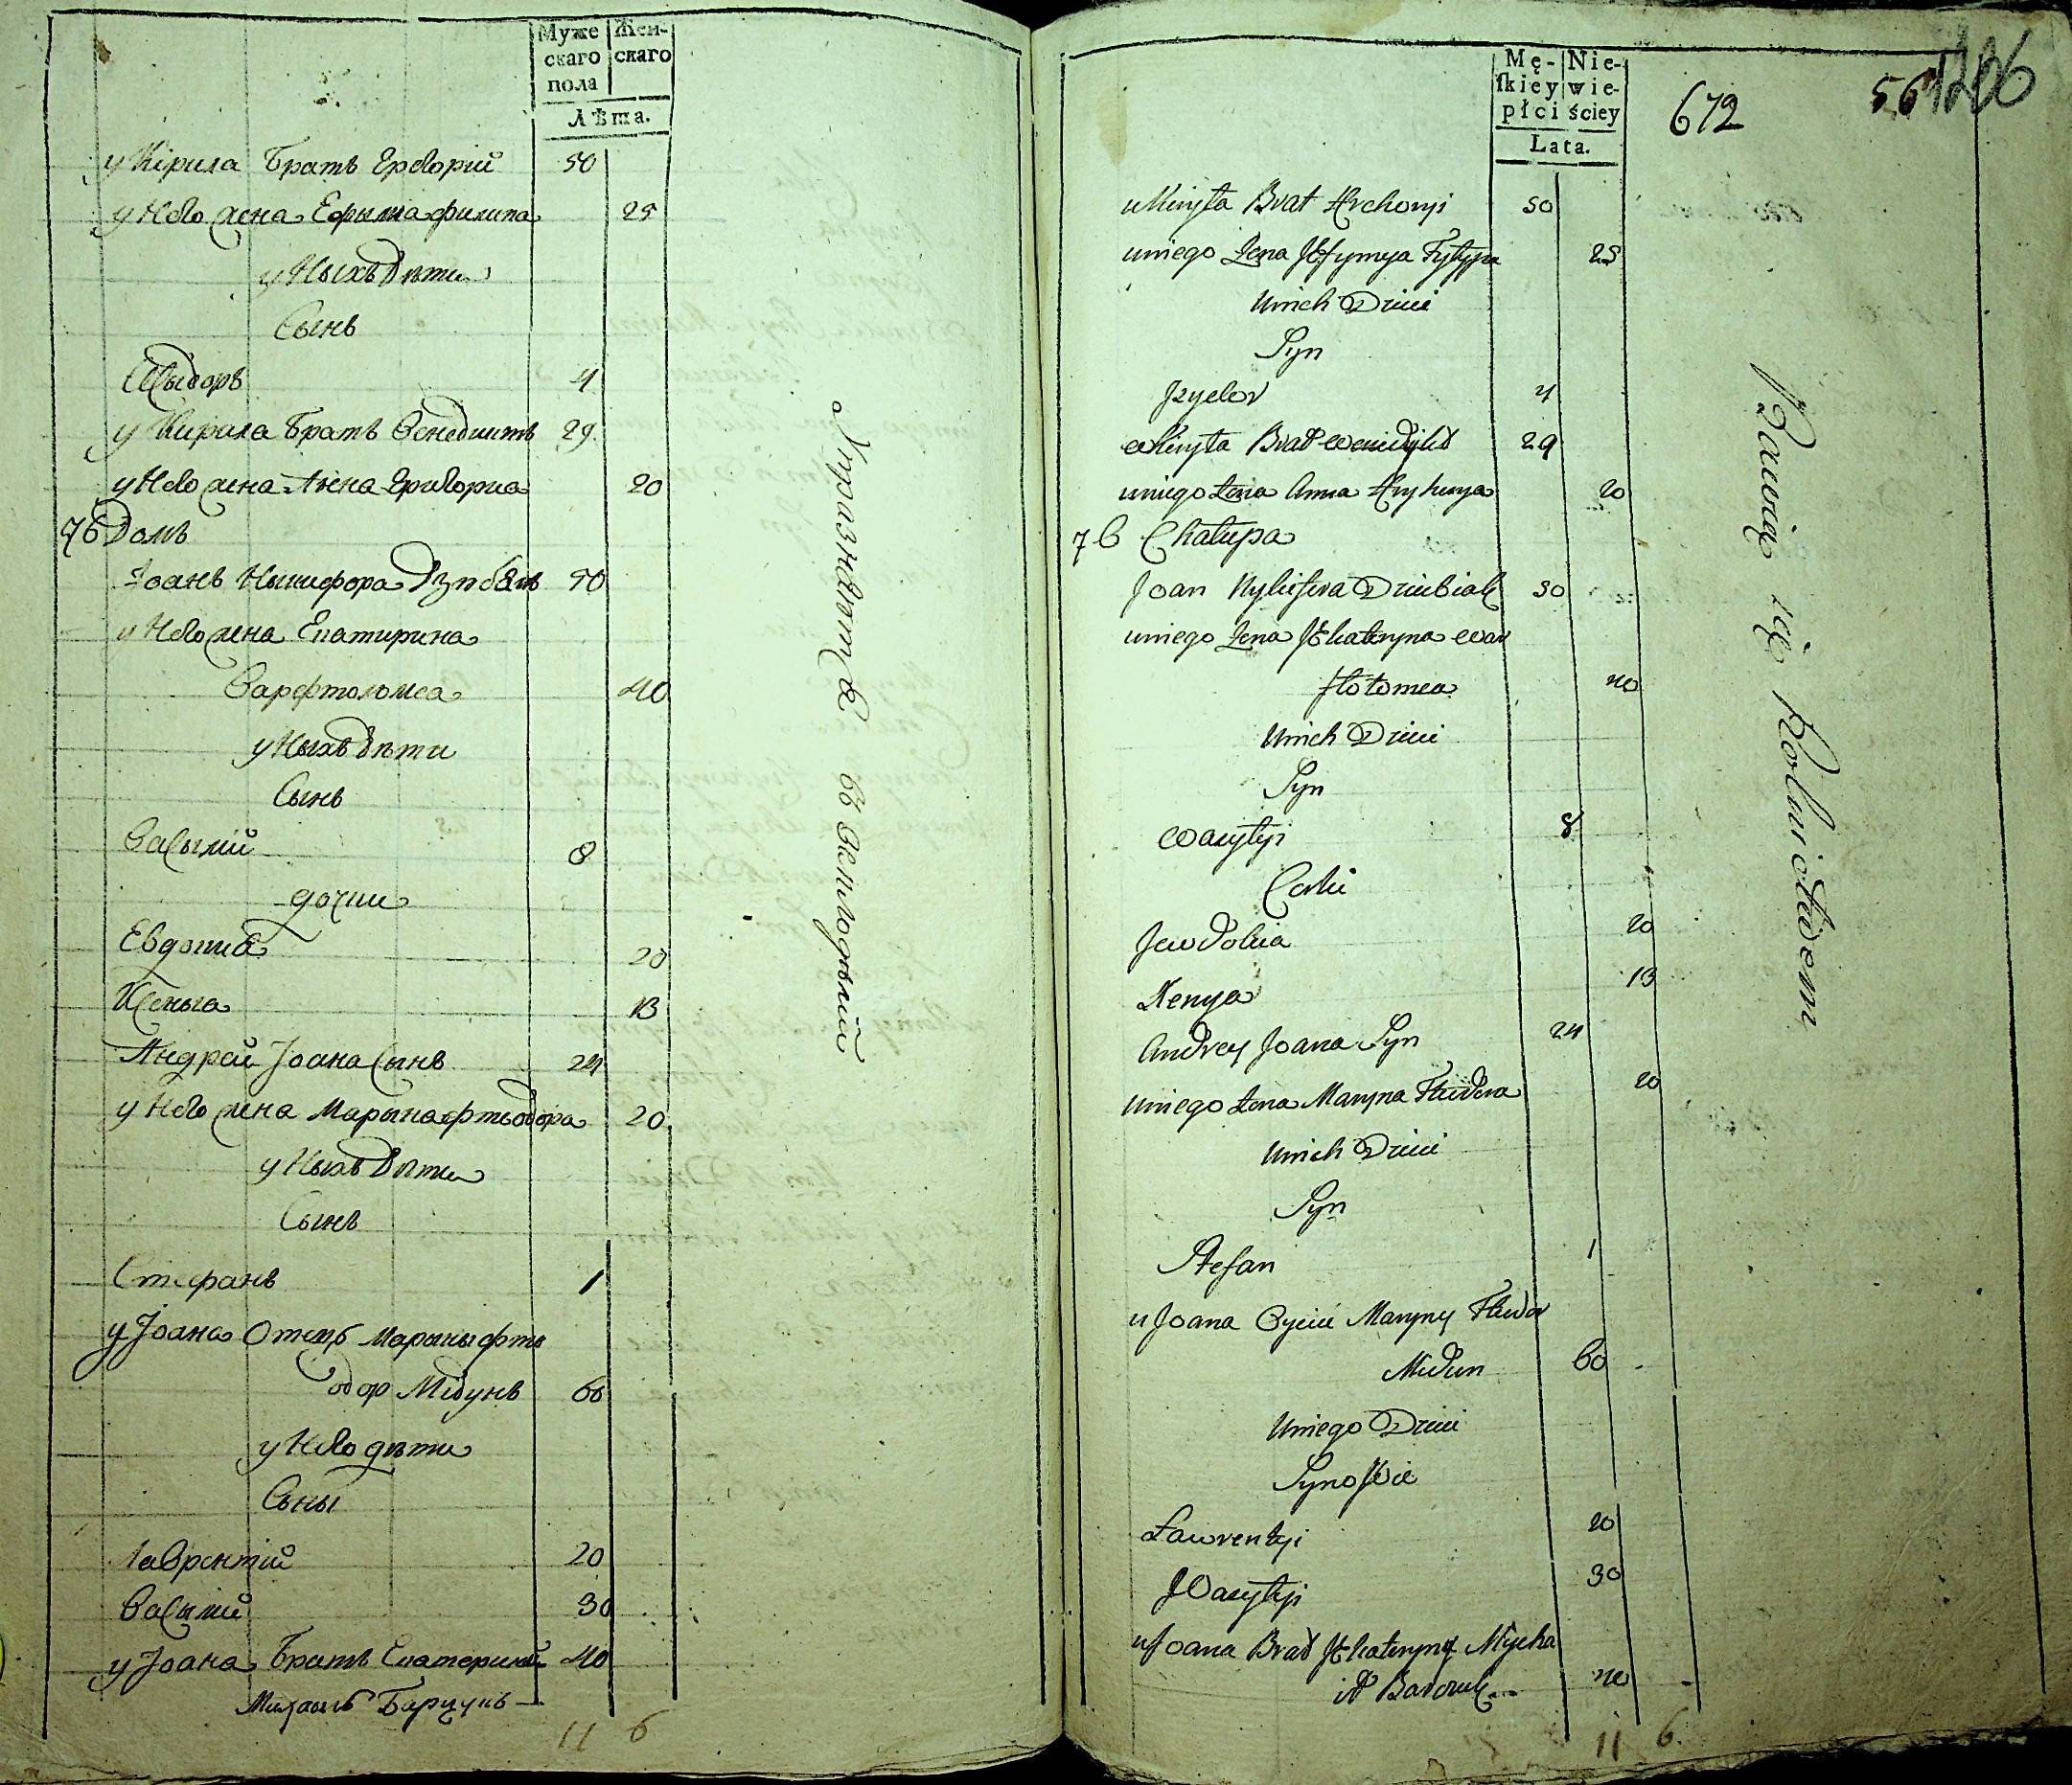 Муже
скаго
пола
Жен-
скаго
Лѣта.
у Кирила Братъ Григорій 50
у Него жена Ефыма Филипа 25
у Ныхъ дѣти
Сынъ
Сыдоръ 4
у Кирила Братъ Венедиктъ 29
у Него жена Анна Григориа 20
76 Домъ
Іоанъ Никифора Дзюбакъ 50
у Него жена Екатирина
Варфтоломеа 40
у Ныхъ дѣти
Сынъ
Васылій 8
дочки
Евдокиа 20
Ксеныа 13
Андрей Іоана Сынъ 24
у Него жена Марына Фтеодора 20
у Ныхъ Дѣти
Сынъ
Стефанъ 1
у Іоана Отецъ Марыны Фте
одор Мѣдунъ 60
у Него дѣти
Сыны
Лаврентій 20
Василій 30
у Іоана Братъ Екатерины 40
Михаилъ Барчукъ
11 6
Упразняется въ Земледѣлій
Mę-
skiey
płci
Nie-
wie-
ściey
Lata.
672
56
1206
u Kiryła Brat Hrehoryi 50
u niego Żena Jefymya Fylypa 25
u nich Dzieci
Syn
Izydor 4
u Kiryła Brat Wenidykt 29
u niego Żena Anna Hryhorya 20
76 Chałupa
Joan Nykifora Dziubiak 50
u niego Żena Jekateryna War
ftołomea 40
u nich Dzieci
Syn
Wasylyi 8
Corki
Jewdokia 20
Xenya 13
Andrey Joana Syn 24
u niego Żena Maryna Fteodora 20
u nich Dzieci
Syn
Stefan 1
u Joana Oyciec Maryny Fteodor
Midun 60
u niego Dzieci
Synowie
Ławrentyi 20
Wasylyi 30
u Joana Brat Jekateryny Mycha
ił Barczuk 40
11 6
Bawią się Rolnictwem